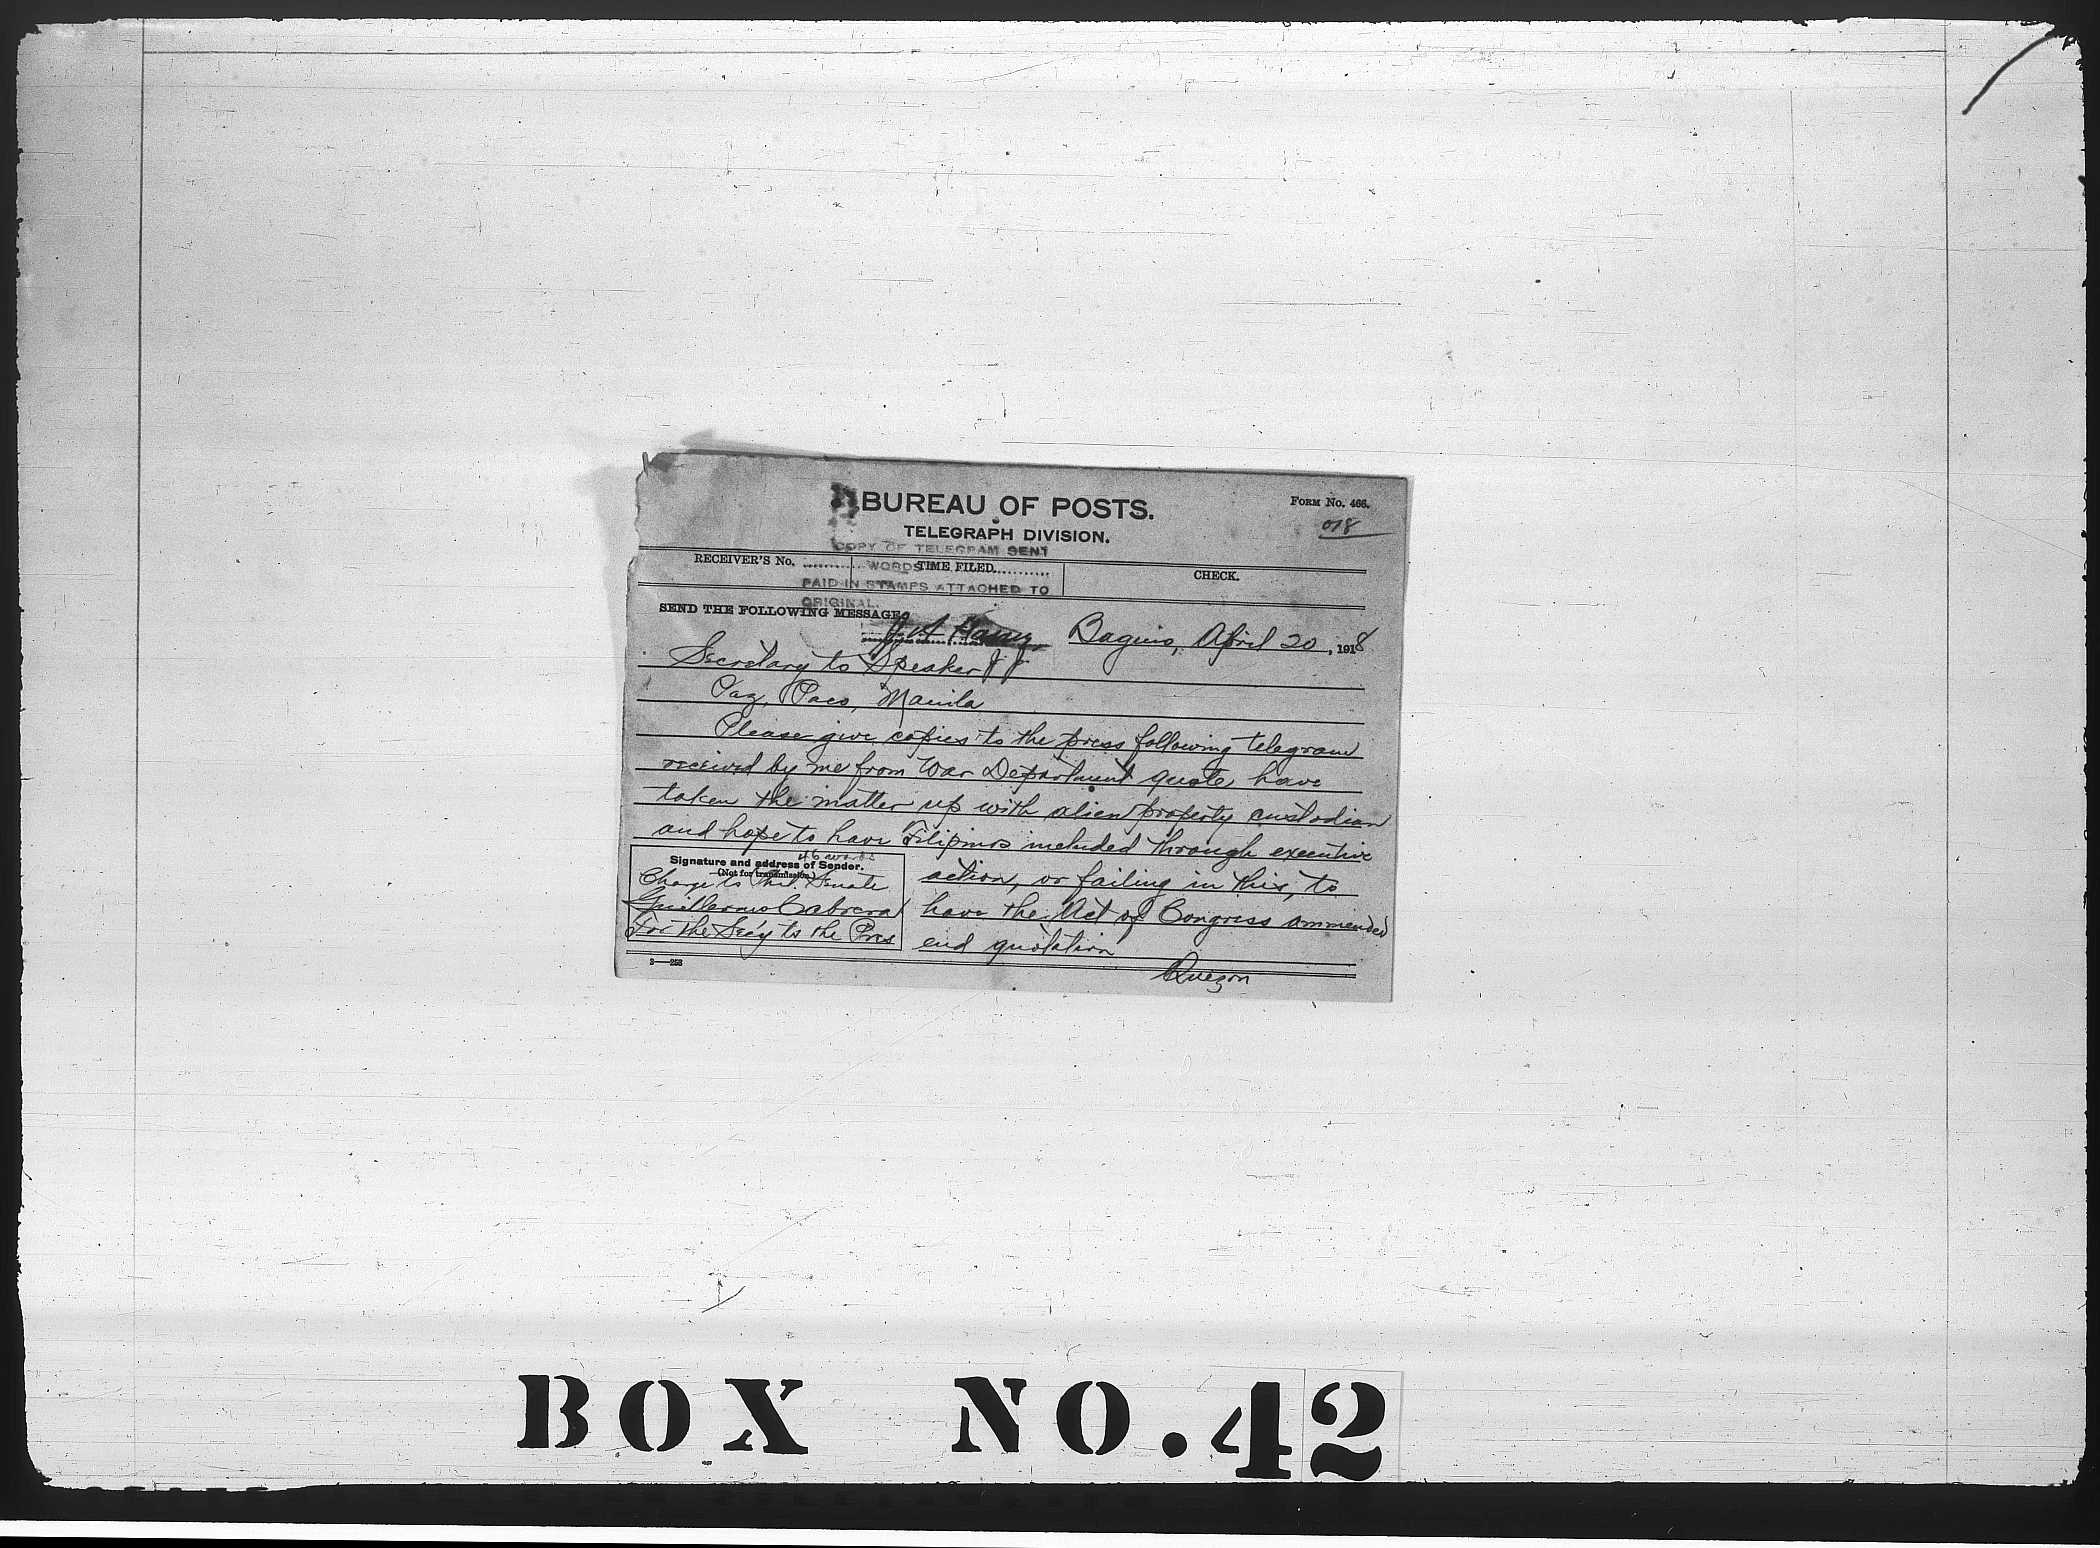 BUREAU OF POSTS.
FORM No. 466.
TELEGRAPH DIVISION.
018
COPY OF TELEGRAM SENT
RECEIVER'S No. .......... WORDS TIME FILED.......... CHECK.
PAID IN STAMPS ATTACHED TO
ORIGINAL.
SEND THE FOLLOWING MESSAGE
Baguio, April 20, 1918
Secretary to Speaker
Paz, Paco, Manila
Please give copies to the press following telegram
received by me from War Department quote have
taken the matter up with alien property custodian
and hope to have Filipinos included through executive
action, or failing in this, to
have the Act of Congress ammended
end quotation
Quezon
46 words
Signature and address of Sender.
(Not for transmission.)
Charge to Phil. Senate
Guillermo Cabrera
For the Sec'y to the Pres
3—258
BOX NO. 42